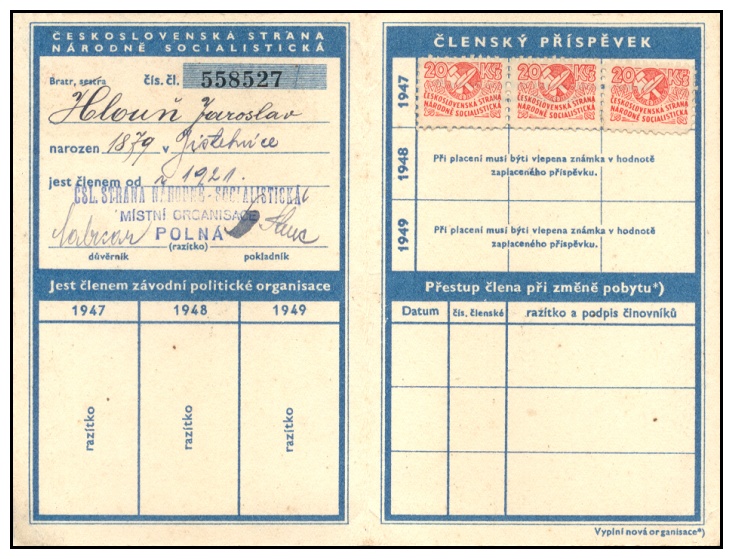 ČESKOSLOVENSKÁ STRANA
NÁRODNĚ SOCIALISTICKÁ
Bratr, sestra čís. čl. 558527
Hlouň Jaroslav
narozen 1879 v
jest členem od r. 1921.
ČSL. STRANA NÁRODNĚ-SOCIALISTICKÁ
MÍSTNÍ ORGANISACE
POLNÁ
(razítko)
důvěrník pokladník
Jest členem závodní politické organisace
1947 1948 1949
razítko razítko razítko
ČLENSKÝ PŘÍSPĚVEK
1947
20 Kčs 20 Kčs 20 Kčs
ČESKOSLOVENSKÁ STRANA ČESKOSLOVENSKÁ STRANA ČESKOSLOVENSKÁ STRANA
NÁRODNĚ SOCIALISTICKÁ NÁRODNĚ SOCIALISTICKÁ NÁRODNĚ SOCIALISTICKÁ
1948
Při placení musí býti vlepena známka v hodnotě
zaplaceného příspěvku.
1949
Při placení musí býti vlepena známka v hodnotě
zaplaceného příspěvku.
Přestup člena při změně pobytu*)
Datum čís. členské razítko a podpis činovníků
Vyplní nová organisace*)